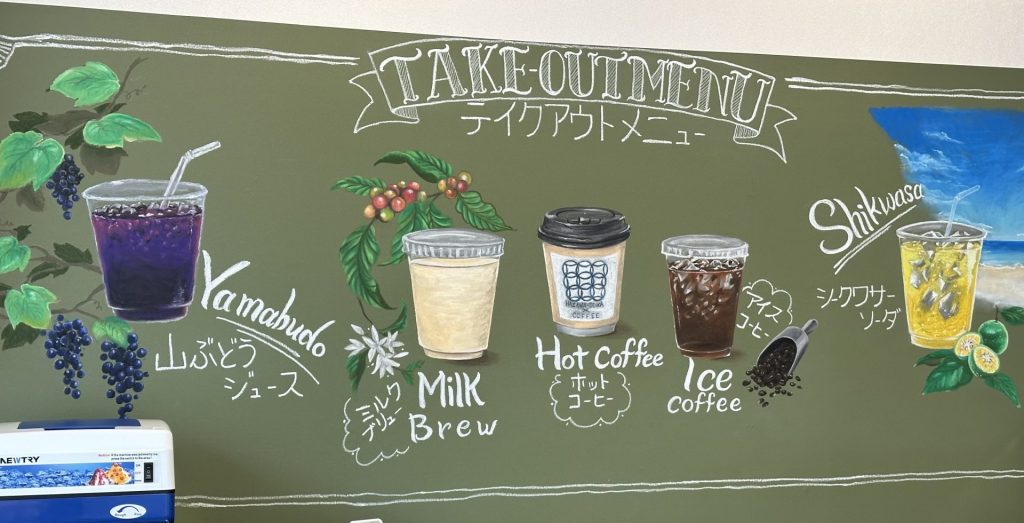 TAKE-OUT MENU
テイクアウトメニュー
Yamabudo
山ぶどう
ジュース
ミルク
ブリュー
Milk
Brew
COFFEE
Hot Coffee
ホット
コーヒー
アイス
コーヒー
Ice
Coffee
Shikwasa
シークワサー
ソーダ
NEWTRY